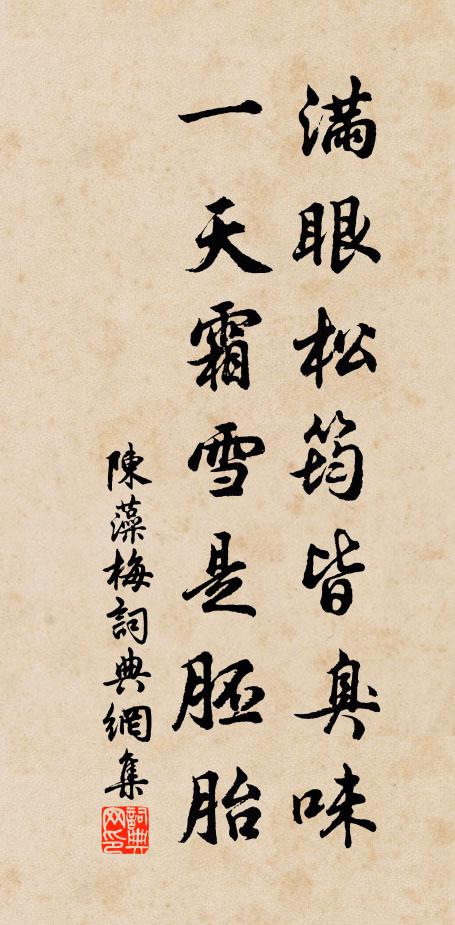 滿眼松筠皆臭味
一天霜雪是胚胎
陳藻梅詞典網集
詞典網印